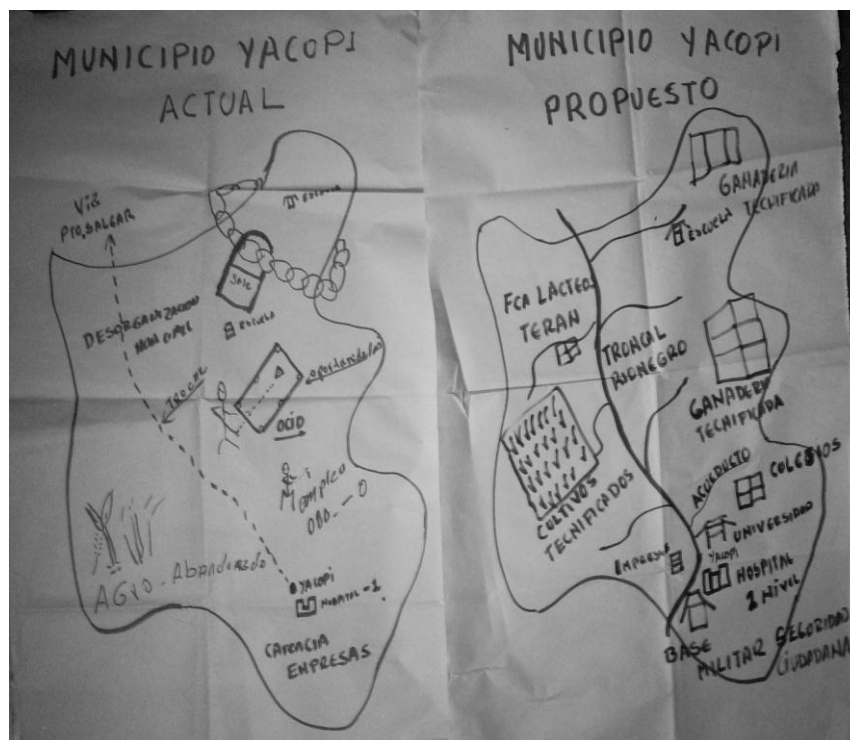 MUNICIPIO YACOPI
ACTUAL
VIA
PTO, SALGAR
ESCUELA
DESORGANIZACION
ESCUELA
TROCHA
OCIO
empleo
000---0
AGRO-Abandonado
YACOPI
HOSPITAL-1
CARENCIA
EMPRESAS
MUNICIPIO YACOPI
PROPUESTO
GANADERIA
TECNIFICADA
ESCUELA
FCA LACTEOS
TERAN
TRONCAL
RIONEGRO
GANADERIA
TECNIFICADA
CULTIVOS
TECNIFICADOS
ACUEDUCTO
COLEGIOS
UNIVERSIDAD
EMPRESAS
YACOPI
HOSPITAL
2 NIVEL
BASE
MILITAR SEGURIDAD
CIUDADANA